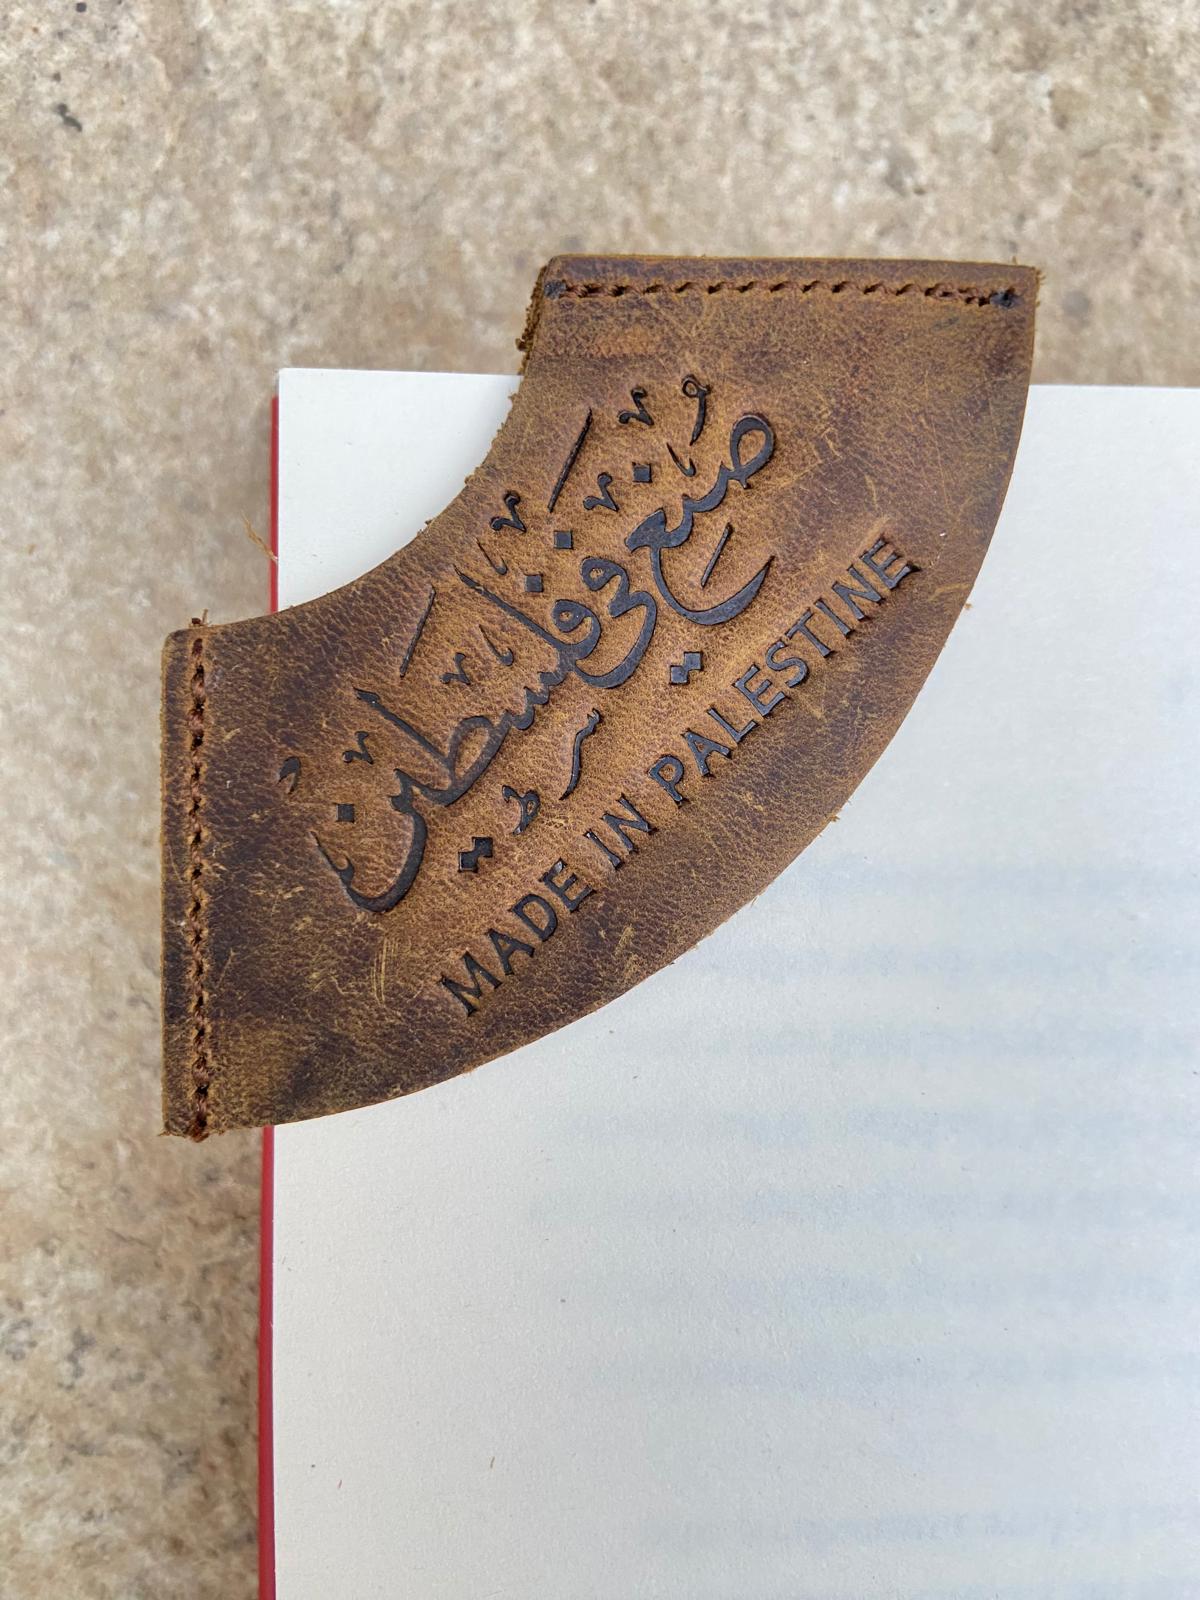 صُنِعَ في فلسطين
MADE IN PALESTINE